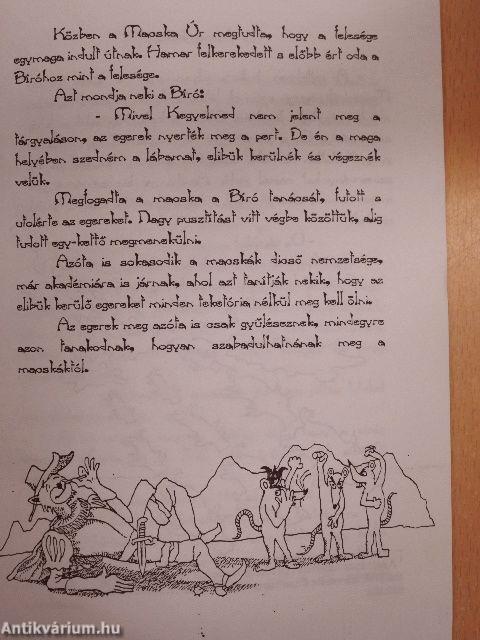 Közben a Macska Úr megtudta, hogy a felesége
egymaga indult útnak. Hamar felkerekedett s előbb ért oda a
Bíróhoz mint a felesége.
Azt mondja neki a Bíró:
- Mivel Kegyelmed nem jelent meg a
tárgyaláson, az egerek nyerték meg a pert. De én a maga
helyében szedném a lábamat, elibük kerülnék és végeznék
velük.
Megfogadta a macska a Bíró tanácsát, futott s
utolérte az egereket. Nagy pusztítást vitt végbe közöttük, alig
tudott egy-kettő megmenekülni.
Azóta is sokasodik a macskák dicső nemzetsége,
már akadémiára is járnak, ahol azt tanítják nekik, hogy az
elibük kerülő egereket minden teketória nélkül meg kell ölni.
Az egerek meg azóta is csak gyűléseznek, mindegyre
azon tanakodnak, hogyan szabadulhatnának meg a
macskáktól.
Antikvárium.hu